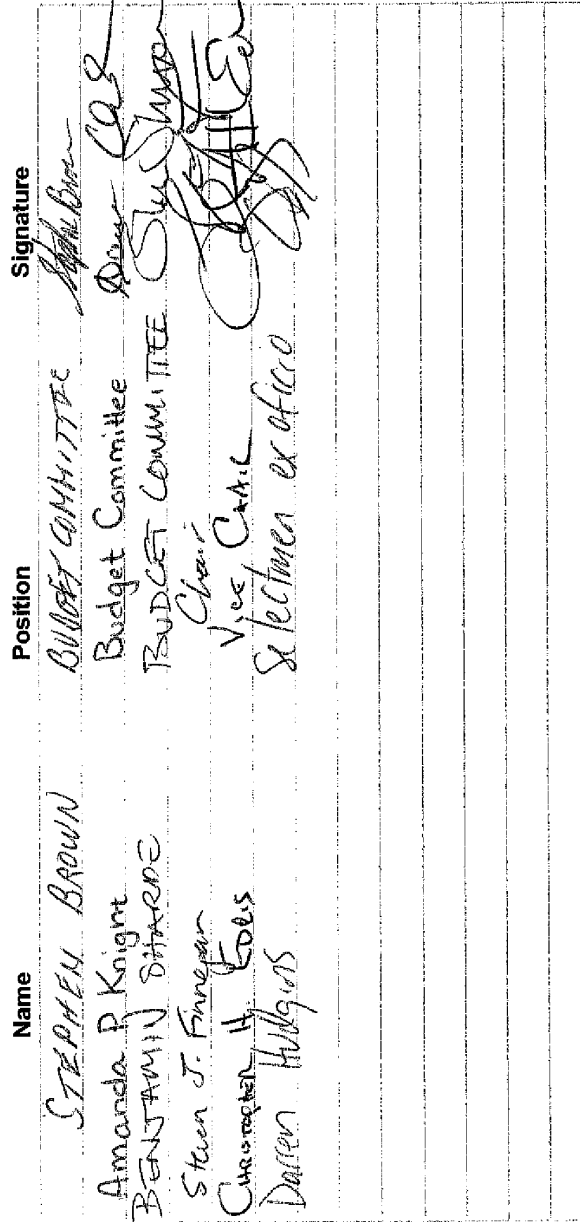 Name Position Signature
STEPHEN BROWN BUDGET COMMITTEE Stephen Brown
Amanda P Knight Budget Committee
BENJAMIN BUDGET COMMITTEE
Steven J. Finnegan Chair
CHRISTOPHER H. Vice CHAIR
Darren Hudgins Selectmen ex oficio